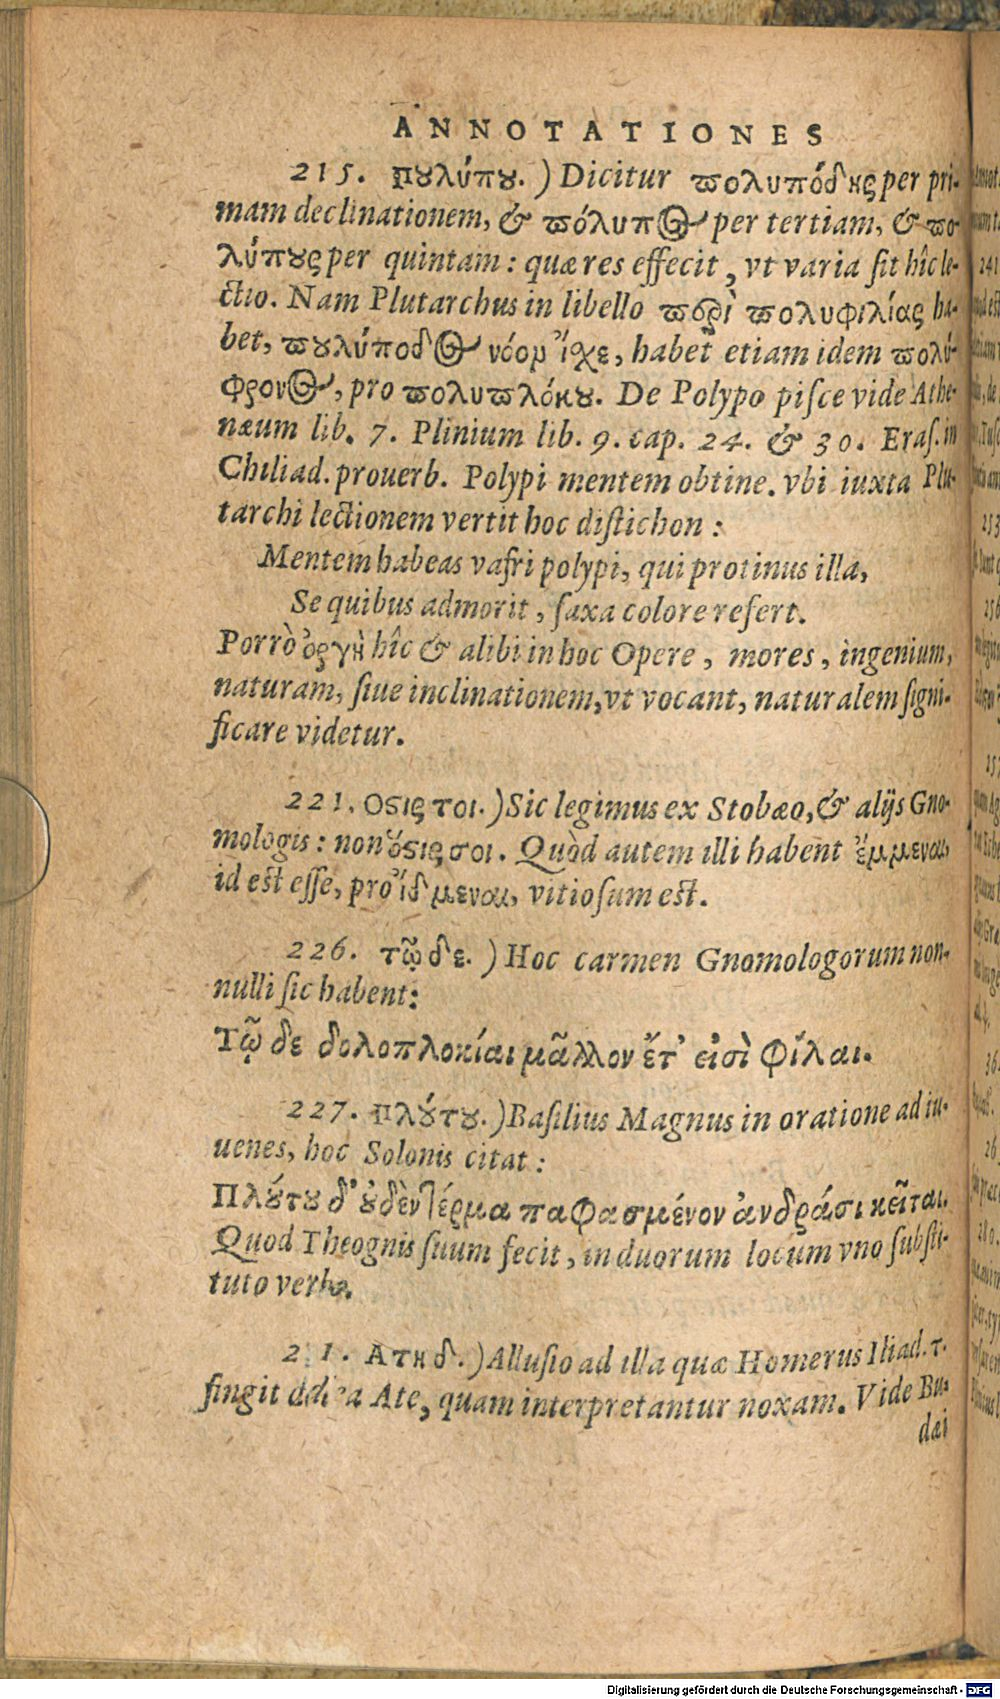 ANNOTATIONES
215. Πουλύπου.) Dicitur πολυπόδης per pri-
mam declinationem, & πόλυπος per tertiam, & πο-
λύπους per quintam: quæ res effecit, vt varia sit hîc le-
ctio. Nam Plutarchus in libello περὶ πολυφιλίας ha-
bet, πουλύποδος νόομ ἴσχε, habet etiam idem πολύ-
φρονος, pro πολυπλόκου. De Polypo pisce vide Athe-
næum lib. 7. Plinium lib. 9. cap. 24. & 30. Eras. in
Chiliad. prouerb. Polypi mentem obtine. vbi iuxta Plu-
tarchi lectionem vertit hoc distichon:
Mentem habeas vafri polypi, qui protinus illa,
Se quibus admorit, saxa colore refert.
Porrò ὀργὴ hîc & alibi in hoc Opere, mores, ingenium,
naturam, siue inclinationem, vt vocant, naturalem signi-
ficare videtur.
221. Οσις τοι.) Sic legimus ex Stobæo, & alijs Gno-
mologis: non ὅσις σοι. Quòd autem illi habent ἔμμεναι,
id est esse, pro ἴδμεναι, vitiosum est.
226. τῷ δε.) Hoc carmen Gnomologorum non-
nulli sic habent:
Τῷ δε δολοπλοκίαι μᾶλλον ἔτ' εἰσὶ φίλαι.
227. Πλούτου.) Basilius Magnus in oratione ad iu-
uenes, hoc Solonis citat:
Πλούτου δ' οὐδὲν τέρμα παφασμένον ἀνδράσι κεῖται.
Quod Theognis suum fecit, in duorum locum vno substi-
tuto verbo.
2 1. Ατη δ.) Allusio ad illa quæ Homerus Iliad. τ.
fingit de dea Ate, quam interpretantur noxam. Vide Bu-
dæi